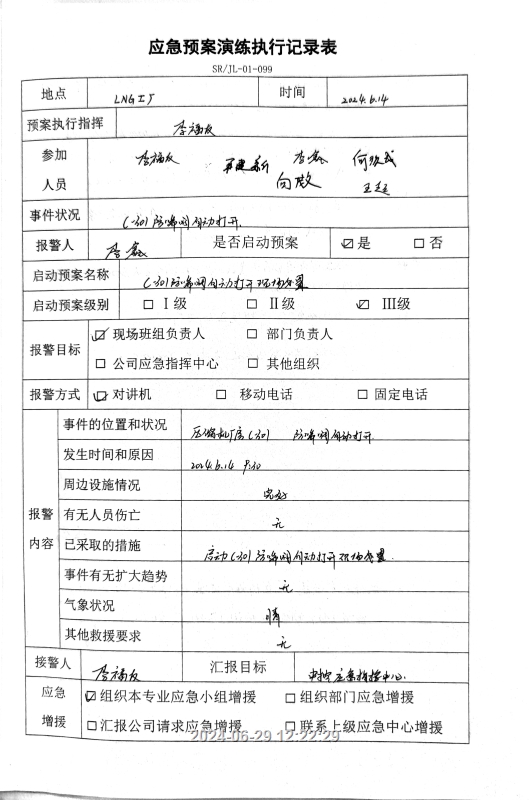 应急预案演练执行记录表
SR/JL-01-099
地点 LNG工厂 时间 2024.6.14
预案执行指挥 李福友
参加 李福友 李鑫
人员 向敞 王超
事件状况 C-301防喘阀自动打开.
报警人 李鑫 是否启动预案 ☑是 □否
启动预案名称 C-301防喘阀自动打开现场处置
启动预案级别 □Ⅰ级 □Ⅱ级 ☑Ⅲ级
报警目标 ☑现场班组负责人 □部门负责人
□公司应急指挥中心 □其他组织
报警方式 ☑对讲机 □移动电话 □固定电话
报警内容
事件的位置和状况 压缩机厂房C-301 防喘阀自动打开.
发生时间和原因 2024.6.14 9:30
周边设施情况 完好
有无人员伤亡 无
已采取的措施 启动C-301防喘阀自动打开现场处置.
事件有无扩大趋势 无
气象状况 晴
其他救援要求 无
接警人 李福友 汇报目标 中控应急指挥中心.
应急增援 ☑组织本专业应急小组增援 □组织部门应急增援
□汇报公司请求应急增援 □联系上级应急中心增援
2024-06-29 12:22:29